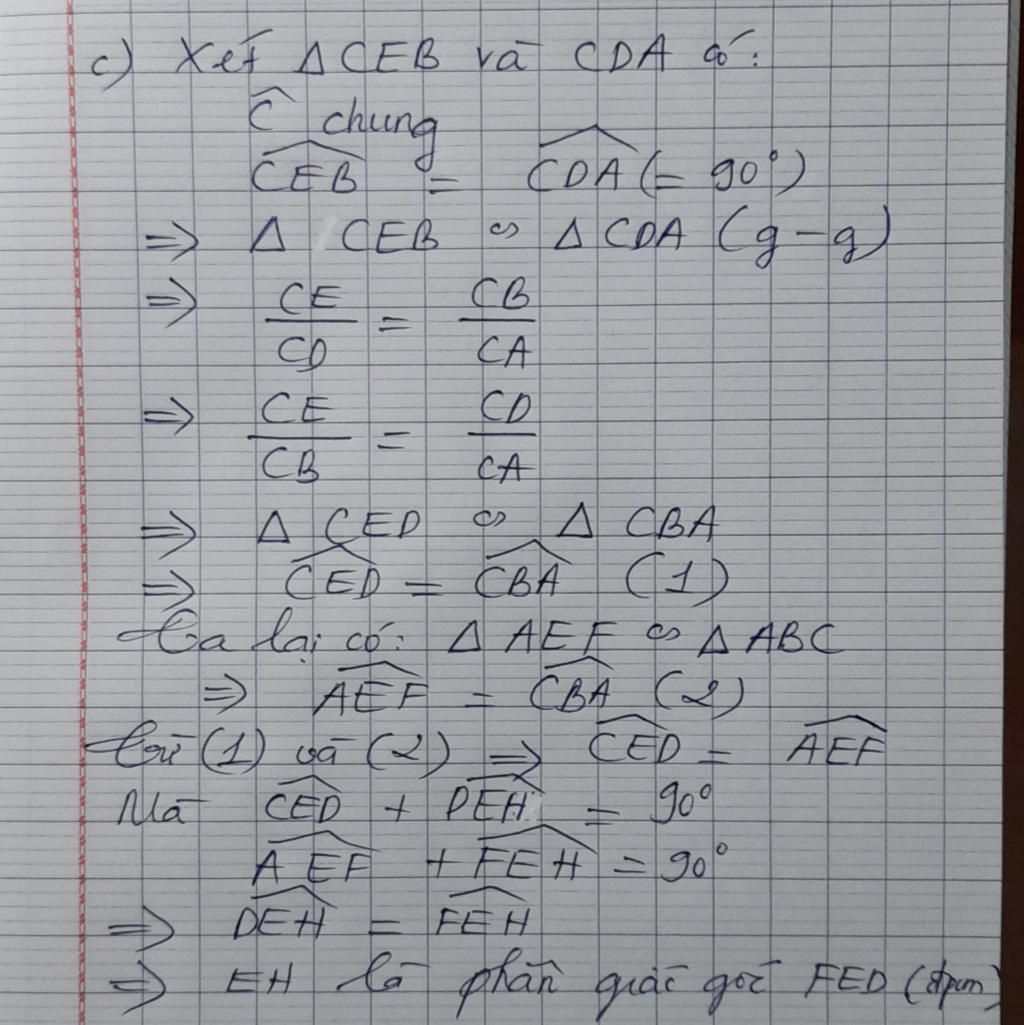 c) Xét Δ CEB và CDA có:
Ĉ chung
\widehat{CEB} = \widehat{CDA} (= 90°)
⇒ Δ CEB ∽ Δ CDA (g-g)
⇒ \frac{CE}{CD} = \frac{CB}{CA}
⇒ \frac{CE}{CB} = \frac{CD}{CA}
⇒ Δ CED ∽ Δ CBA
⇒ \widehat{CED} = \widehat{CBA} (1)
Ta lại có: Δ AEF ∽ Δ ABC
⇒ \widehat{AEF} = \widehat{CBA} (2)
Từ (1) và (2) ⇒ \widehat{CED} = \widehat{AEF}
Mà \widehat{CED} + \widehat{DEH} = 90°
\widehat{AEF} + \widehat{FEH} = 90°
⇒ \widehat{DEH} = \widehat{FEH}
⇒ EH là phân giác góc FED (đpcm)